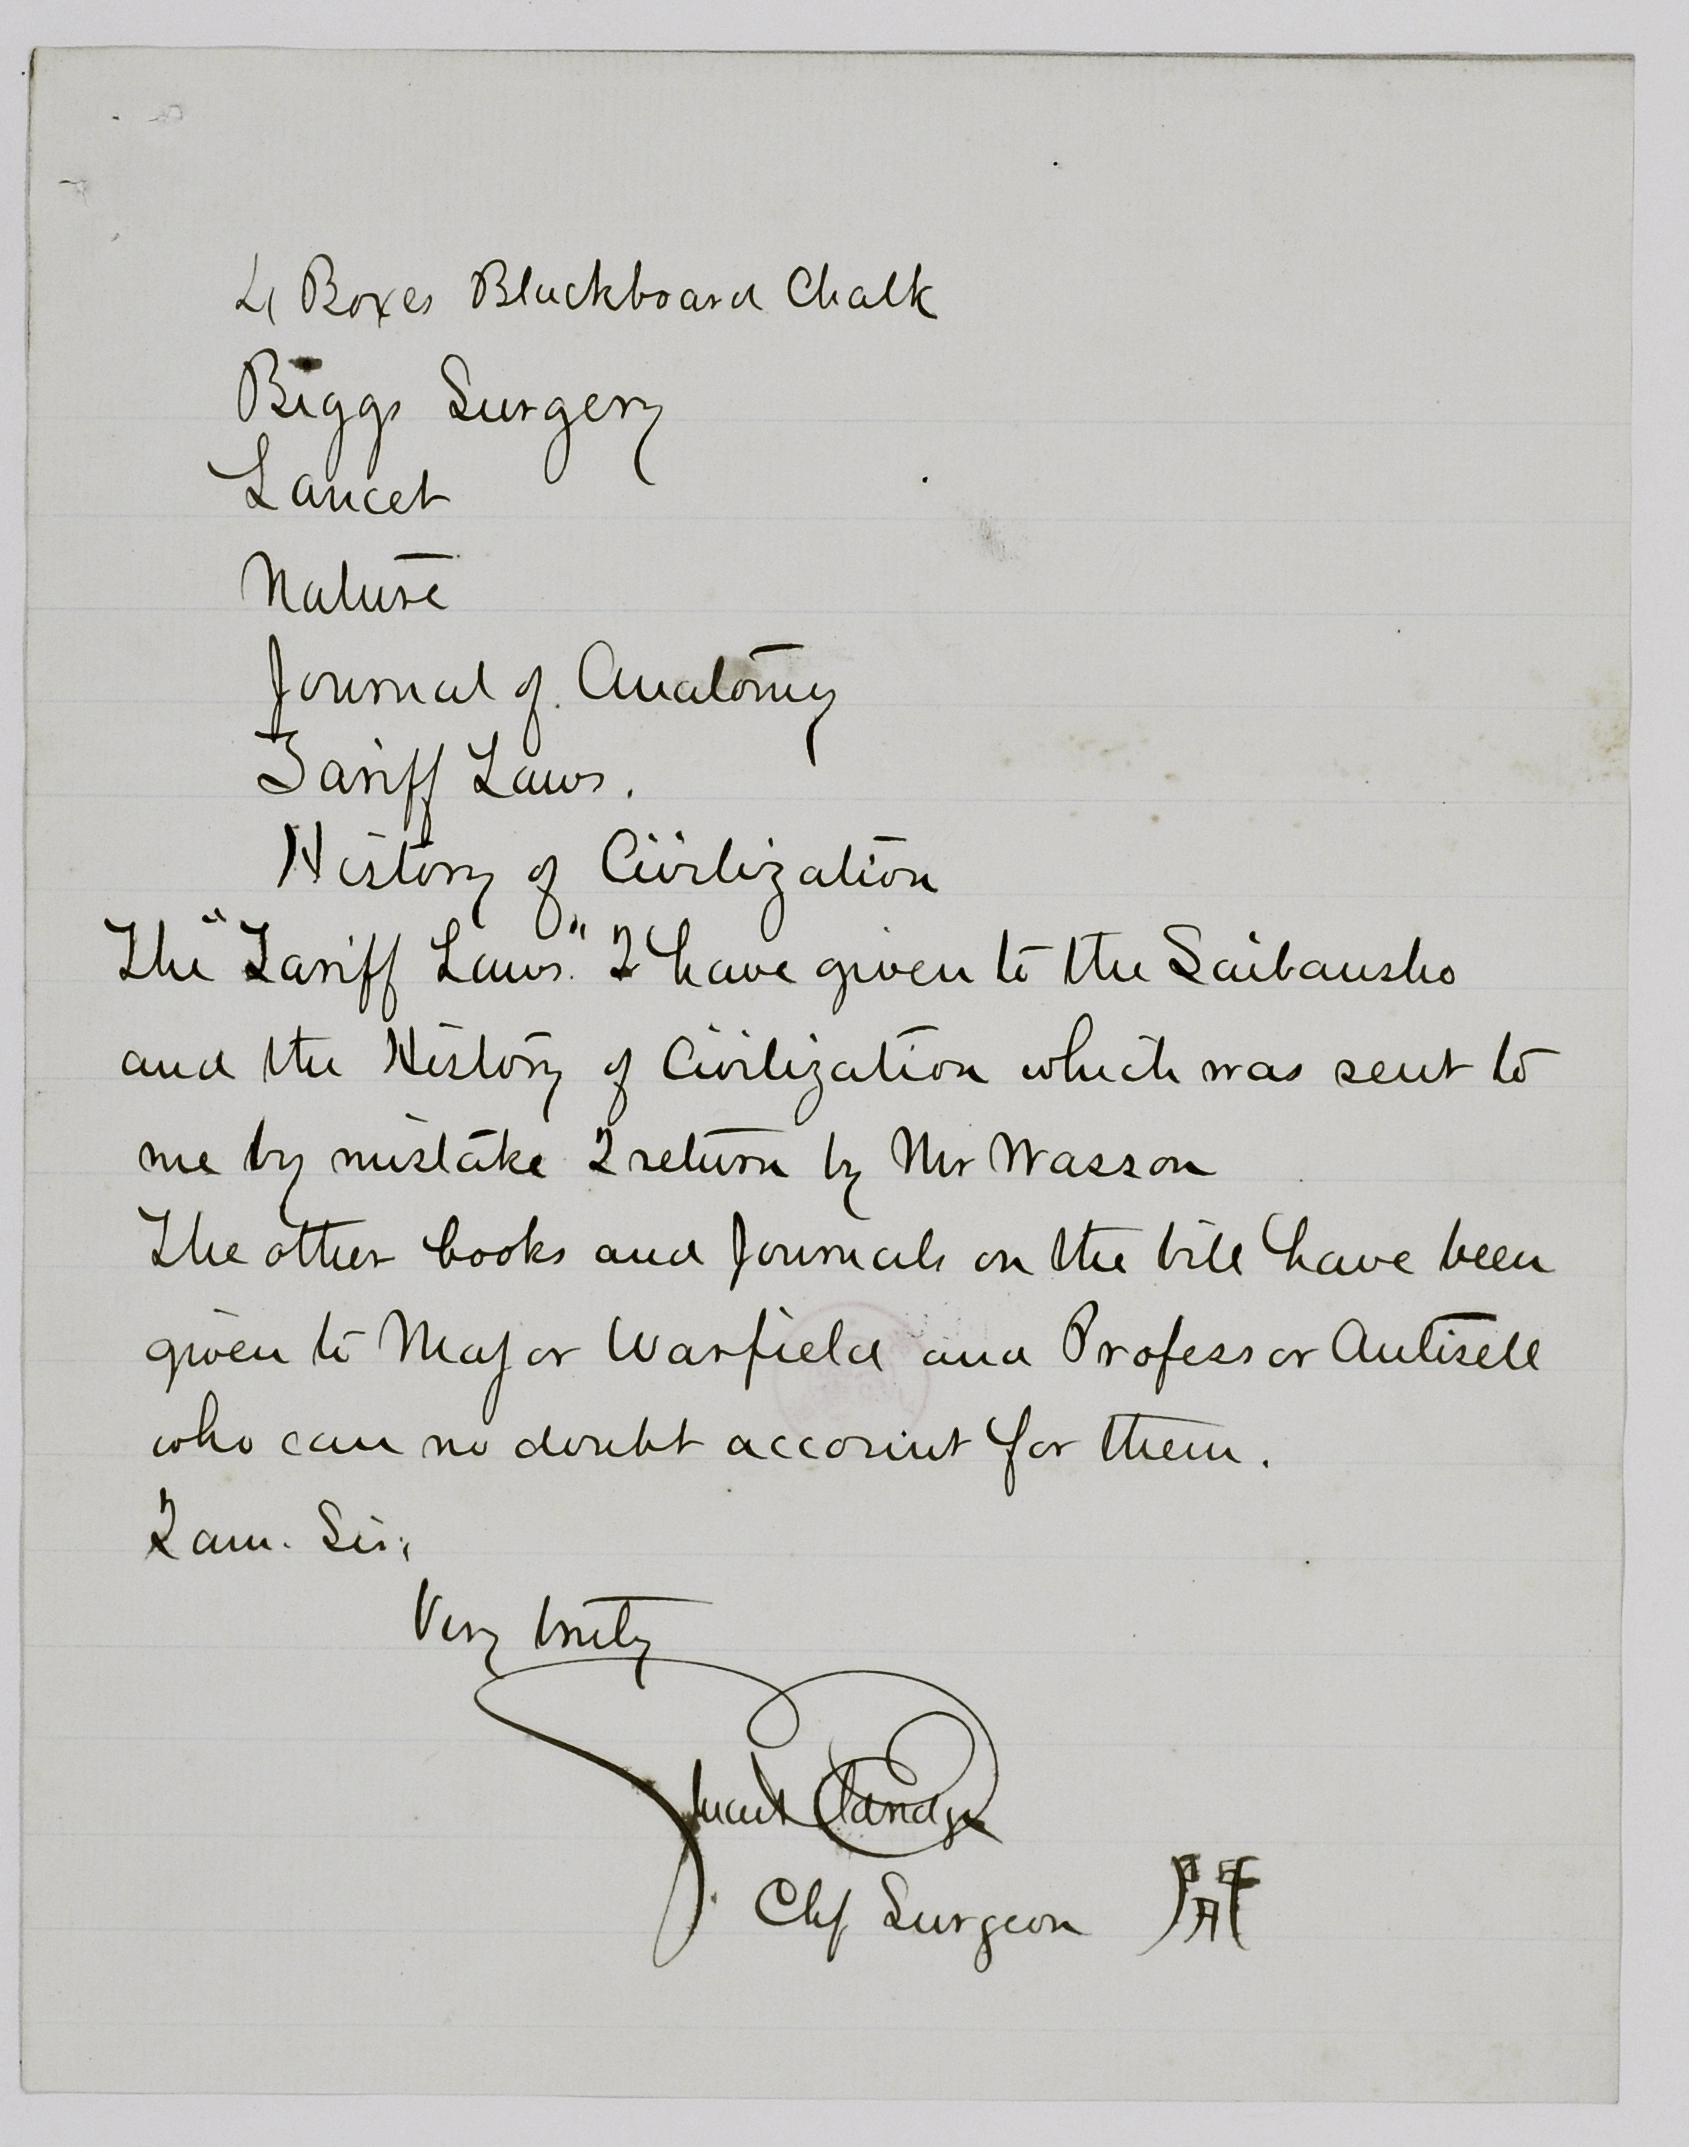 4 Boxes Blackboard Chalk
Biggs Surgery
Lancet
Nature
Journal of Anatomy
Tariff Laws.
History of Civilization
The "Tariff Laws." I have given to the Saibansho
and the History of Civilization which was sent to
me by mistake I return by Mr Wasson
The other books and Journals on the bill have been
given to Major Warfield and Professor Antisell
who can no doubt account for them.
I am. Sir,
Very truly
Stuart Eldridge
Chf Surgeon